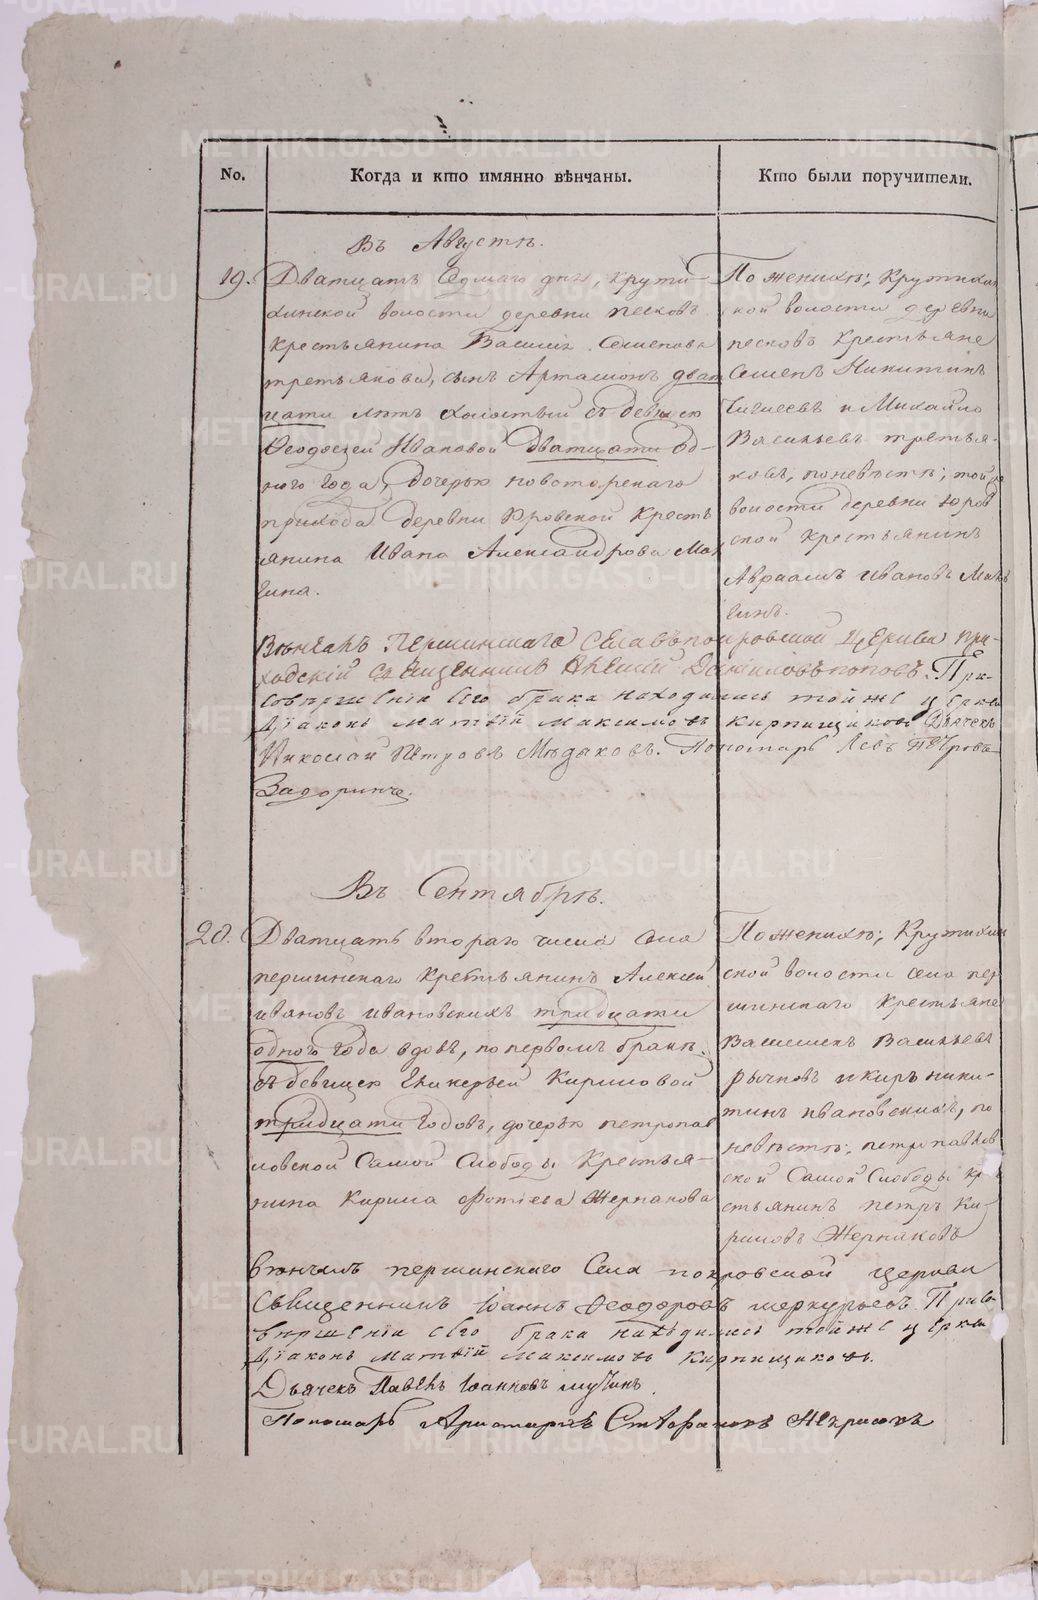 No.
Когда и кто имянно вѣнчаны.
Кто были поручители.
Въ Августѣ.
19.
Дватцать Седмаго дня, крути-
хинской волости деревни песковъ
крестьянина Василья Семенова
третьякова, сынъ Артамонъ дват
цати лѣтъ холостый съ девицею
Феодосьей Ивановой дватцати од-
ного года, дочерью новоторскаго
прихода деревни Юровской Кресть
янина Ивана Александрова Мак
гина.
По женихѣ; Крутихин
ской волости деревни
песковъ Крестьяне
Семенъ Никитинъ
и Михайло
Васильевъ третья-
ковъ, по невѣстѣ; той же
волости деревни Юров
ской крестьянинъ
Авраамъ Ивановъ
Вѣнчалъ Першинскаго Села покровской Церкви при-
ходский Священникъ Алексий Данииловъ поповъ. При
совершении сего брака находились той же церкви
Дїаконъ Матѳїй Максимовъ Кирпищиковъ Дьячекъ
Николай Петровъ Мѣдяковъ. Пономарь Левъ Петровъ
Задоринъ.
Въ Сентябрѣ.
20.
Дватцать втораго числа Села
першинскаго крестьянинъ Алексей
ивановъ ивановскихъ тридцати
одного года вдовъ, по первомъ бракѣ.
съ девицею Гликерьей Кириловой
тридцати годовъ, дочерью петропав
ловской Самой Слободы Крестья-
нина Кирила Фотїева Жернакова
По женихѣ; Крутихин
ской волости села пер
шинскаго Крестьяне
Васильевъ
рычковъ и киръ ники-
тинъ ивановскихъ, по
невѣстѣ; петропавлов
ской Самой Слободы кре
стьянинъ петръ Ки
риловъ Жернаковъ
Вѣнчалъ першинскаго Села покровской Церкви
Священникъ Іоаннъ Ѳеодоровъ меркурьевъ. При со
вершении сего брака находились той же церкви
Дїаконъ Матѳїй Максимовъ Кирпищиковъ.
Дьячекъ Павелъ Іоанновъ
Пономарь Аристархъ Стефановъ Некрасовъ